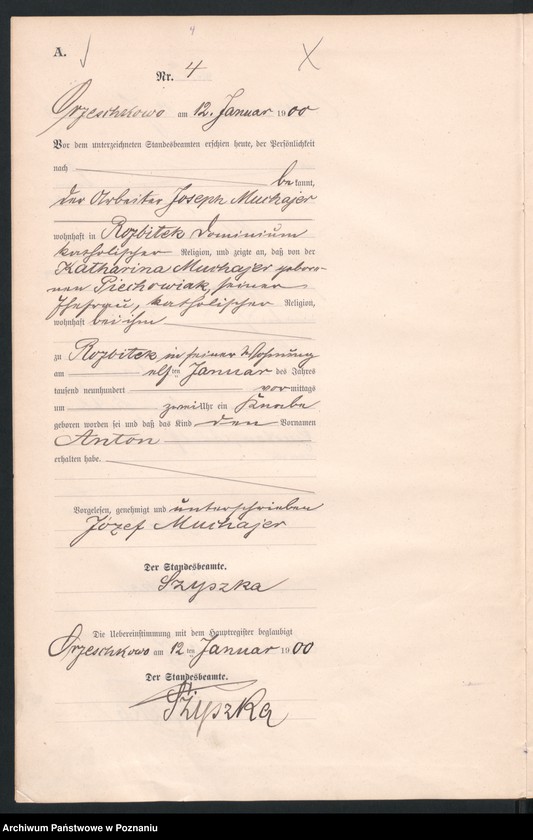 4
A.
Nr. 4
Orzeschkowo am 12. Januar 1900
Vor dem unterzeichneten Standesbeamten erschien heute, der Persönlichkeit
nach bekannt,
der Arbeiter Joseph Muchajer
wohnhaft in Rozbitek Dominium
katholischer Religion, und zeigte an, daß von der
Katharina Muchajer gebore-
nen Piechowiak, seiner
Ehefrau, katholischer Religion,
wohnhaft bei ihm
zu Rozbitek in seiner Wohnung
am elften Januar des Jahres
tausend neunhundert vormittags
um zwei Uhr ein Knabe
geboren worden sei und daß das Kind den Vornamen
Anton
erhalten habe.
Vorgelesen, genehmigt und unterschrieben
Józef Muchajer
Der Standesbeamte.
Szyszka
Die Uebereinstimmung mit dem Hauptregister beglaubigt
Orzeschkowo am 12ten Januar 1900
Der Standesbeamte.
Szyszka
Archiwum Państwowe w Poznaniu